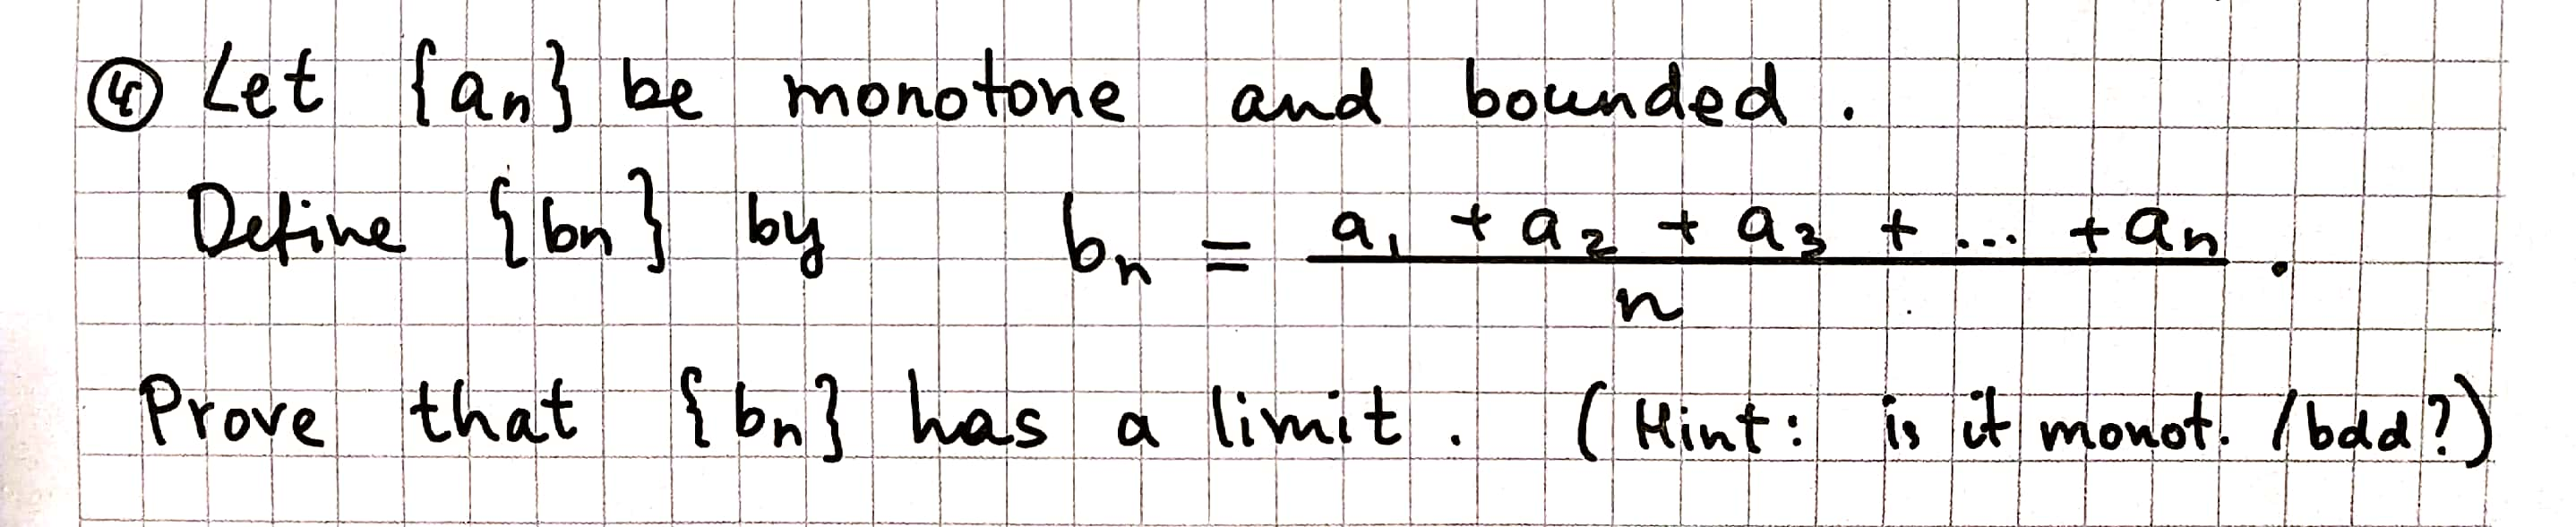 ④ Let {aₙ} be monotone and bounded.
Define {bₙ} by bₙ = (a₁ + a₂ + a₃ + ... + aₙ) / n .
Prove that {bₙ} has a limit. (Hint: is it monot. /bdd?)